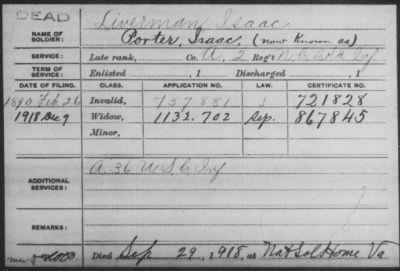 DEAD
Liverman Isaac
NAME OF SOLDIER: Porter, Isaac. (now Known as)
SERVICE: Late rank, Co. A. 2 Reg't N.C. Inf
TERM OF SERVICE: Enlisted , 1 Discharged , 1
DATE OF FILING. CLASS. APPLICATION NO. LAW. CERTIFICATE NO.
1890 Feb. 26 Invalid, 757881 721828
1918 Dec 9 Widow, 1132.702 Sep. 867845
Minor,
ADDITIONAL SERVICES: A 36 U.S.C. Inf
REMARKS:
Died Sep 29, 1918, at Nat Sol Home Va